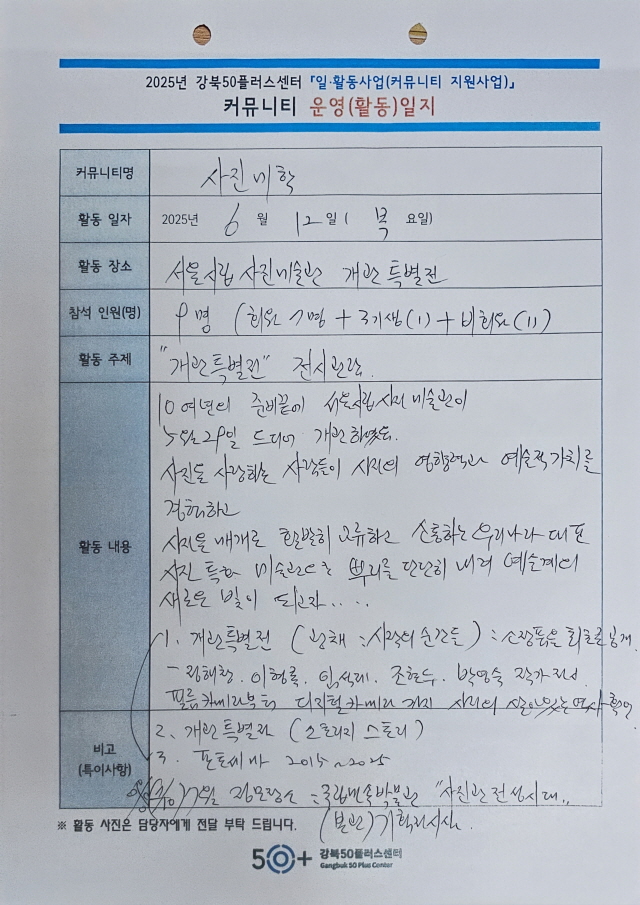 2025년 강북50플러스센터 「일·활동사업(커뮤니티 지원사업)」
커뮤니티 운영(활동)일지
커뮤니티명 사진미학
활동 일자 2025년 6 월 12 일 ( 목 요일)
활동 장소 서울시립 사진미술관 개관 특별전
참석 인원(명) 9명 (회원 7명 + 3기생(1) + 비회원(1))
활동 주제 "개관특별전" 전시관람.
10여년의 준비끝에 서울시립사진미술관이
5월 29일 드디어 개관하였다.
사진을 사랑하는 사람들이 사진의 영향력과 예술적가치를
경험하고
활동 내용
사진을 매개로 활발히 교류하고 소통하는 우리나라 대표
사진 특화 미술관으로 뿌리를 단단히 내려 예술계의
새로운 빛이 되고자.....
1. 개관특별전 (광채 : 시작의 순간들) : 소장품은 최초로 공개.
- 정해창. 이형록. 임석제. 조현두. 박영숙 작가전시.
필름카메라부터 디지털카메라 까지 사진의 살아있는역사
비고
(특이사항)
2. 개관특별전 (스토리지 스토리)
3. 포토세마 2015~2025
7월 정모장소 : 국립민속박물관 "사진관전성시대"
(본관) 기획전시실.
※ 활동 사진은 담당자에게 전달 부탁 드립니다.
50+ 강북50플러스센터
Gangbuk 50 Plus Center